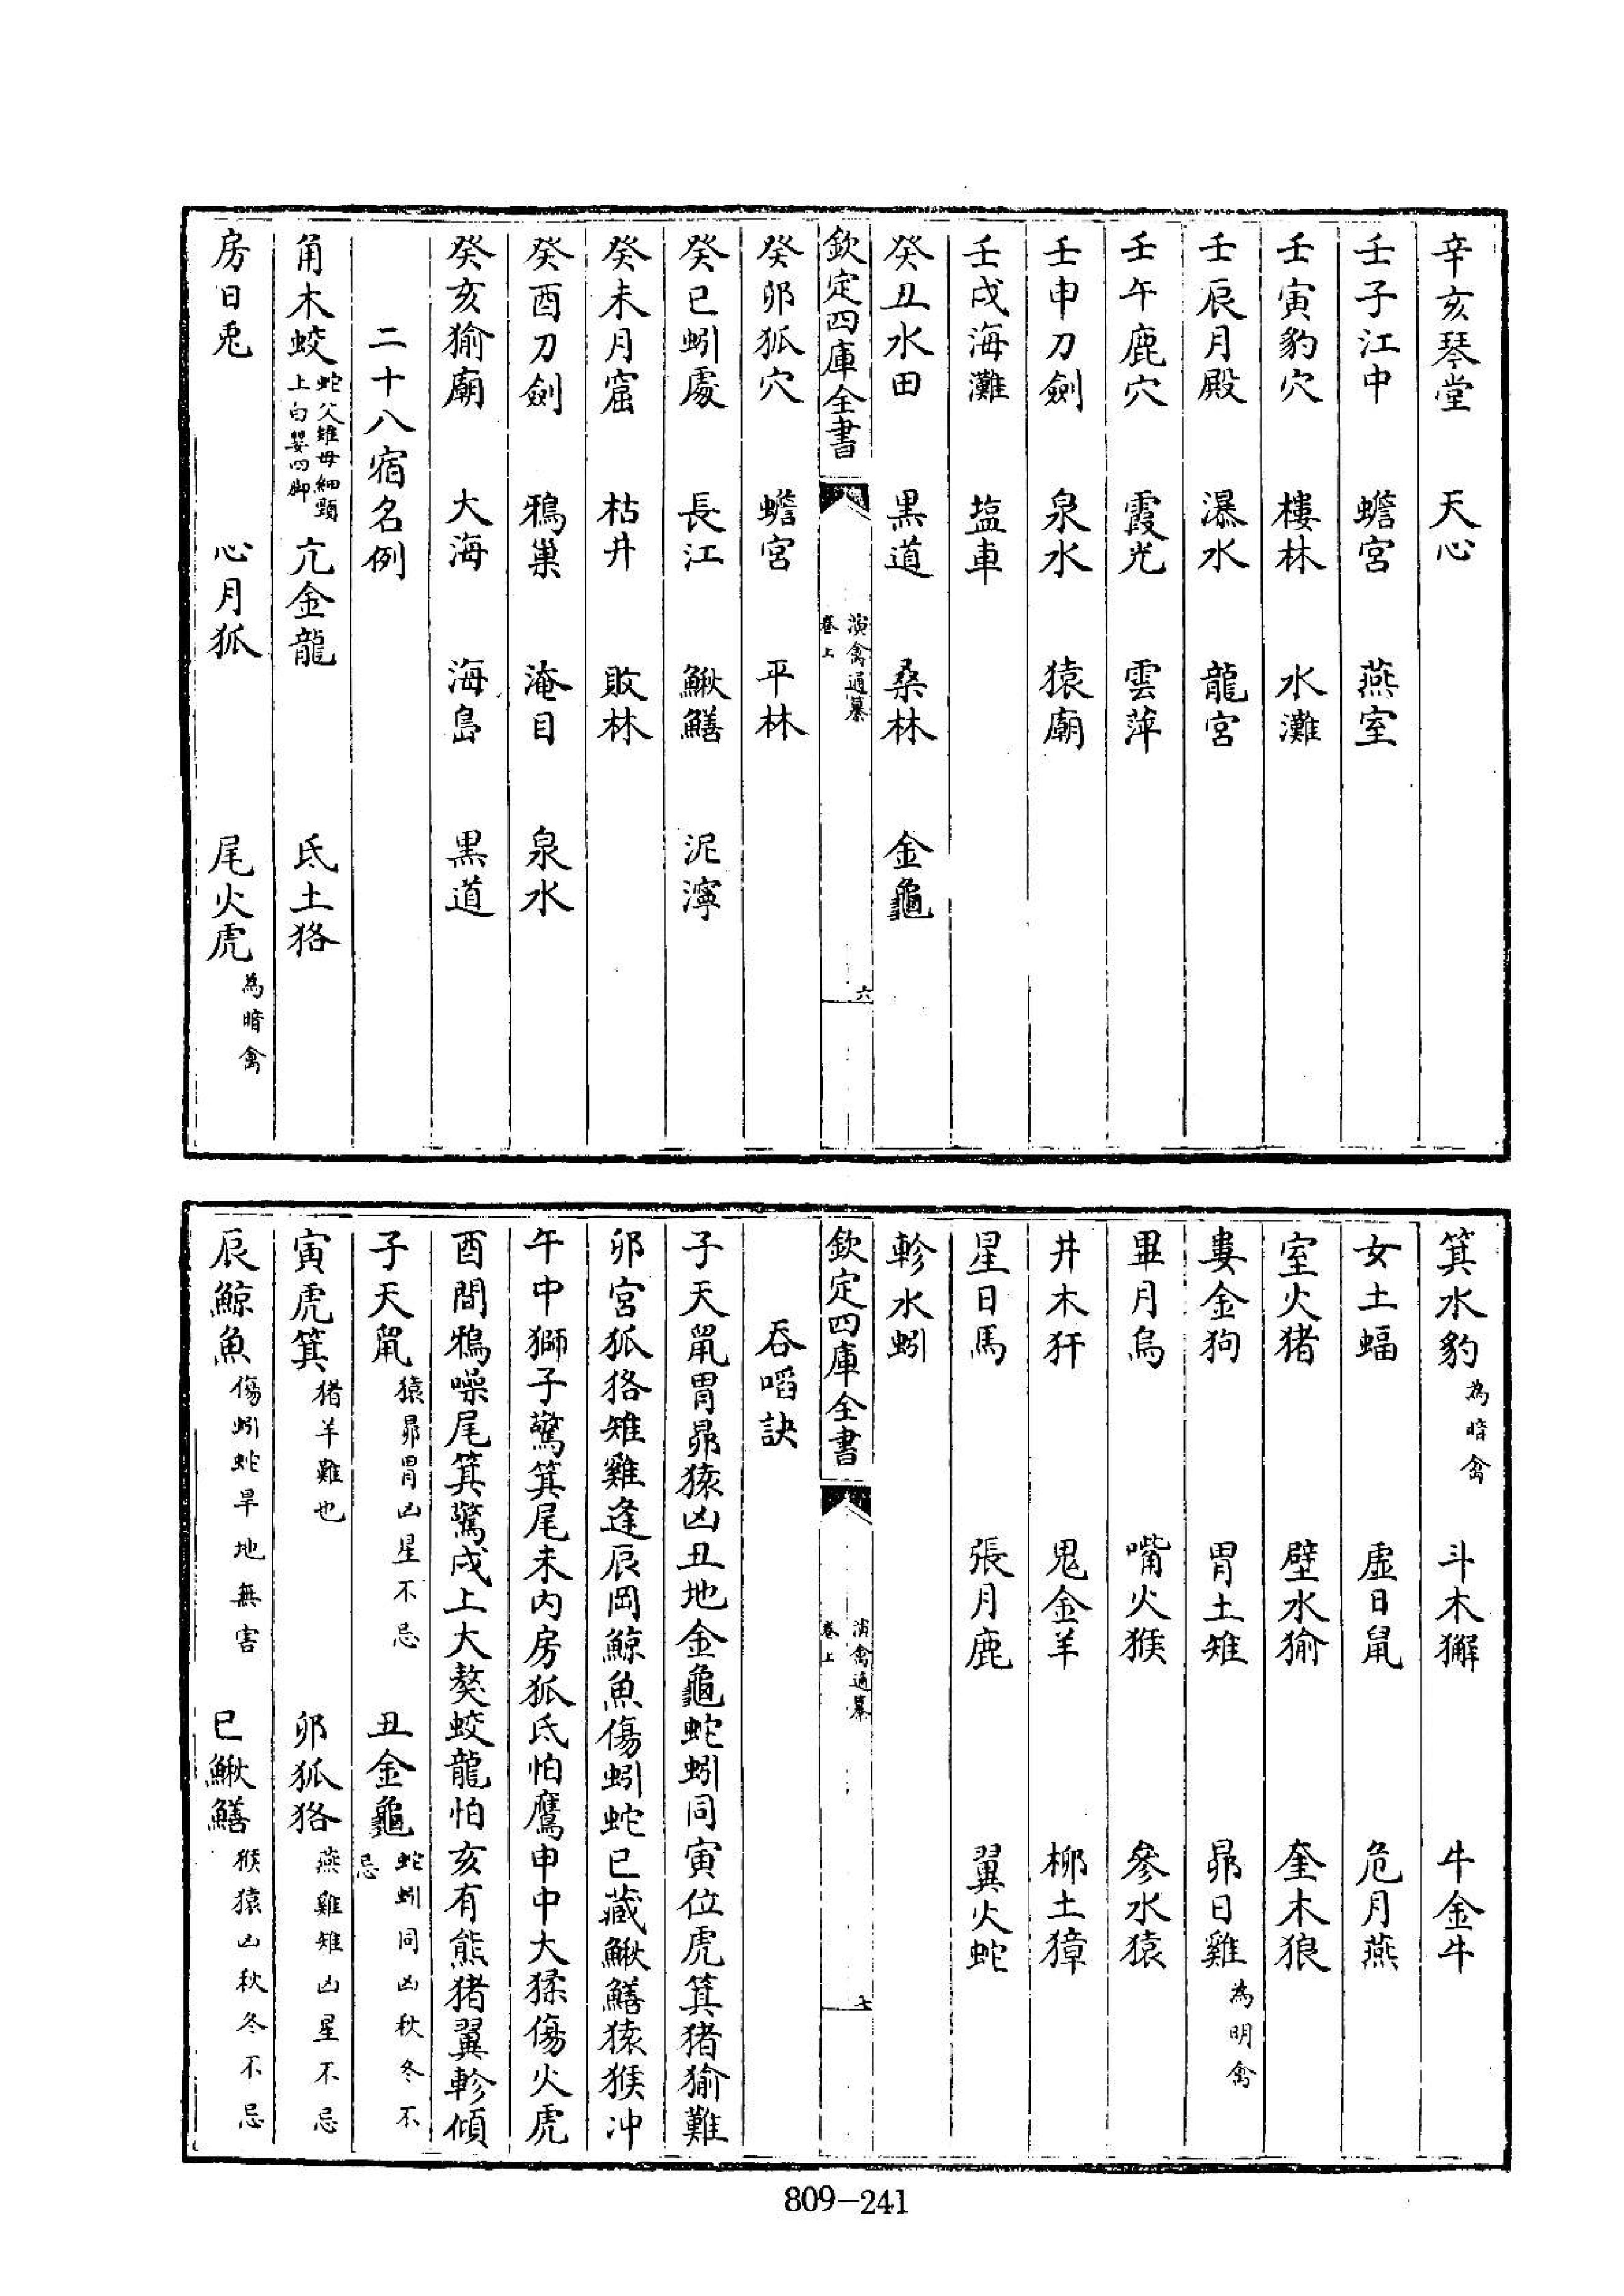 辛亥琴堂　天心
壬子江中　蟾宮　燕室
壬寅豹穴　樓林　水灘
壬辰月殿　瀑水　龍宮
壬午鹿穴　霞光　雲萍
壬申刀劍　泉水　猿廟
壬戌海灘　塩車
癸丑水田　黒道　桑林　金龜
欽定四庫全書　演禽通纂　卷上　六
癸卯狐穴　蟾宮　平林
癸巳蚓處　長江　鰍鱔　泥濘
癸未月窟　枯井　敗林
癸酉刀劍　鴉巢　淹目　泉水
癸亥㺄廟　大海　海島　黒道
二十八宿名例
角木蛟蛇父雉母細頸上白嬰四脚　亢金龍　氐土狢
房日兎　心月狐　尾火虎為暗禽
箕水豹為暗禽　斗木獬　牛金牛
女土蝠　虛日鼠　危月燕
室火猪　壁水㺄　奎木狼
婁金狗　胃土雉　昴日雞為明禽
畢月烏　嘴火猴　參水猿
井木犴　鬼金羊　柳土獐
星日馬　張月鹿　翼火蛇
軫水蚓
欽定四庫全書　演禽通纂　卷上　七
吞啗訣
子天鼠胃昴猿凶丑地金龜蛇蚓同寅位虎箕猪㺄難
卯宮狐狢雉雞逢辰岡鯨魚傷蚓蛇巳藏鰍鱔猿猴冲
午中獅子驚箕尾未内房狐氐怕鷹申中大猱傷火虎
酉間鴉噪尾箕驚戌上大獒蛟龍怕亥有熊猪翼軫傾
子天鼠猿昴胃凶星不忌　丑金龜蛇蚓同凶秋冬不忌
寅虎箕猪羊難也　卯狐狢燕雞雉凶星不忌
辰鯨魚傷蚓蛇旱地無害　巳鰍鱔猴猿凶秋冬不忌
809—241